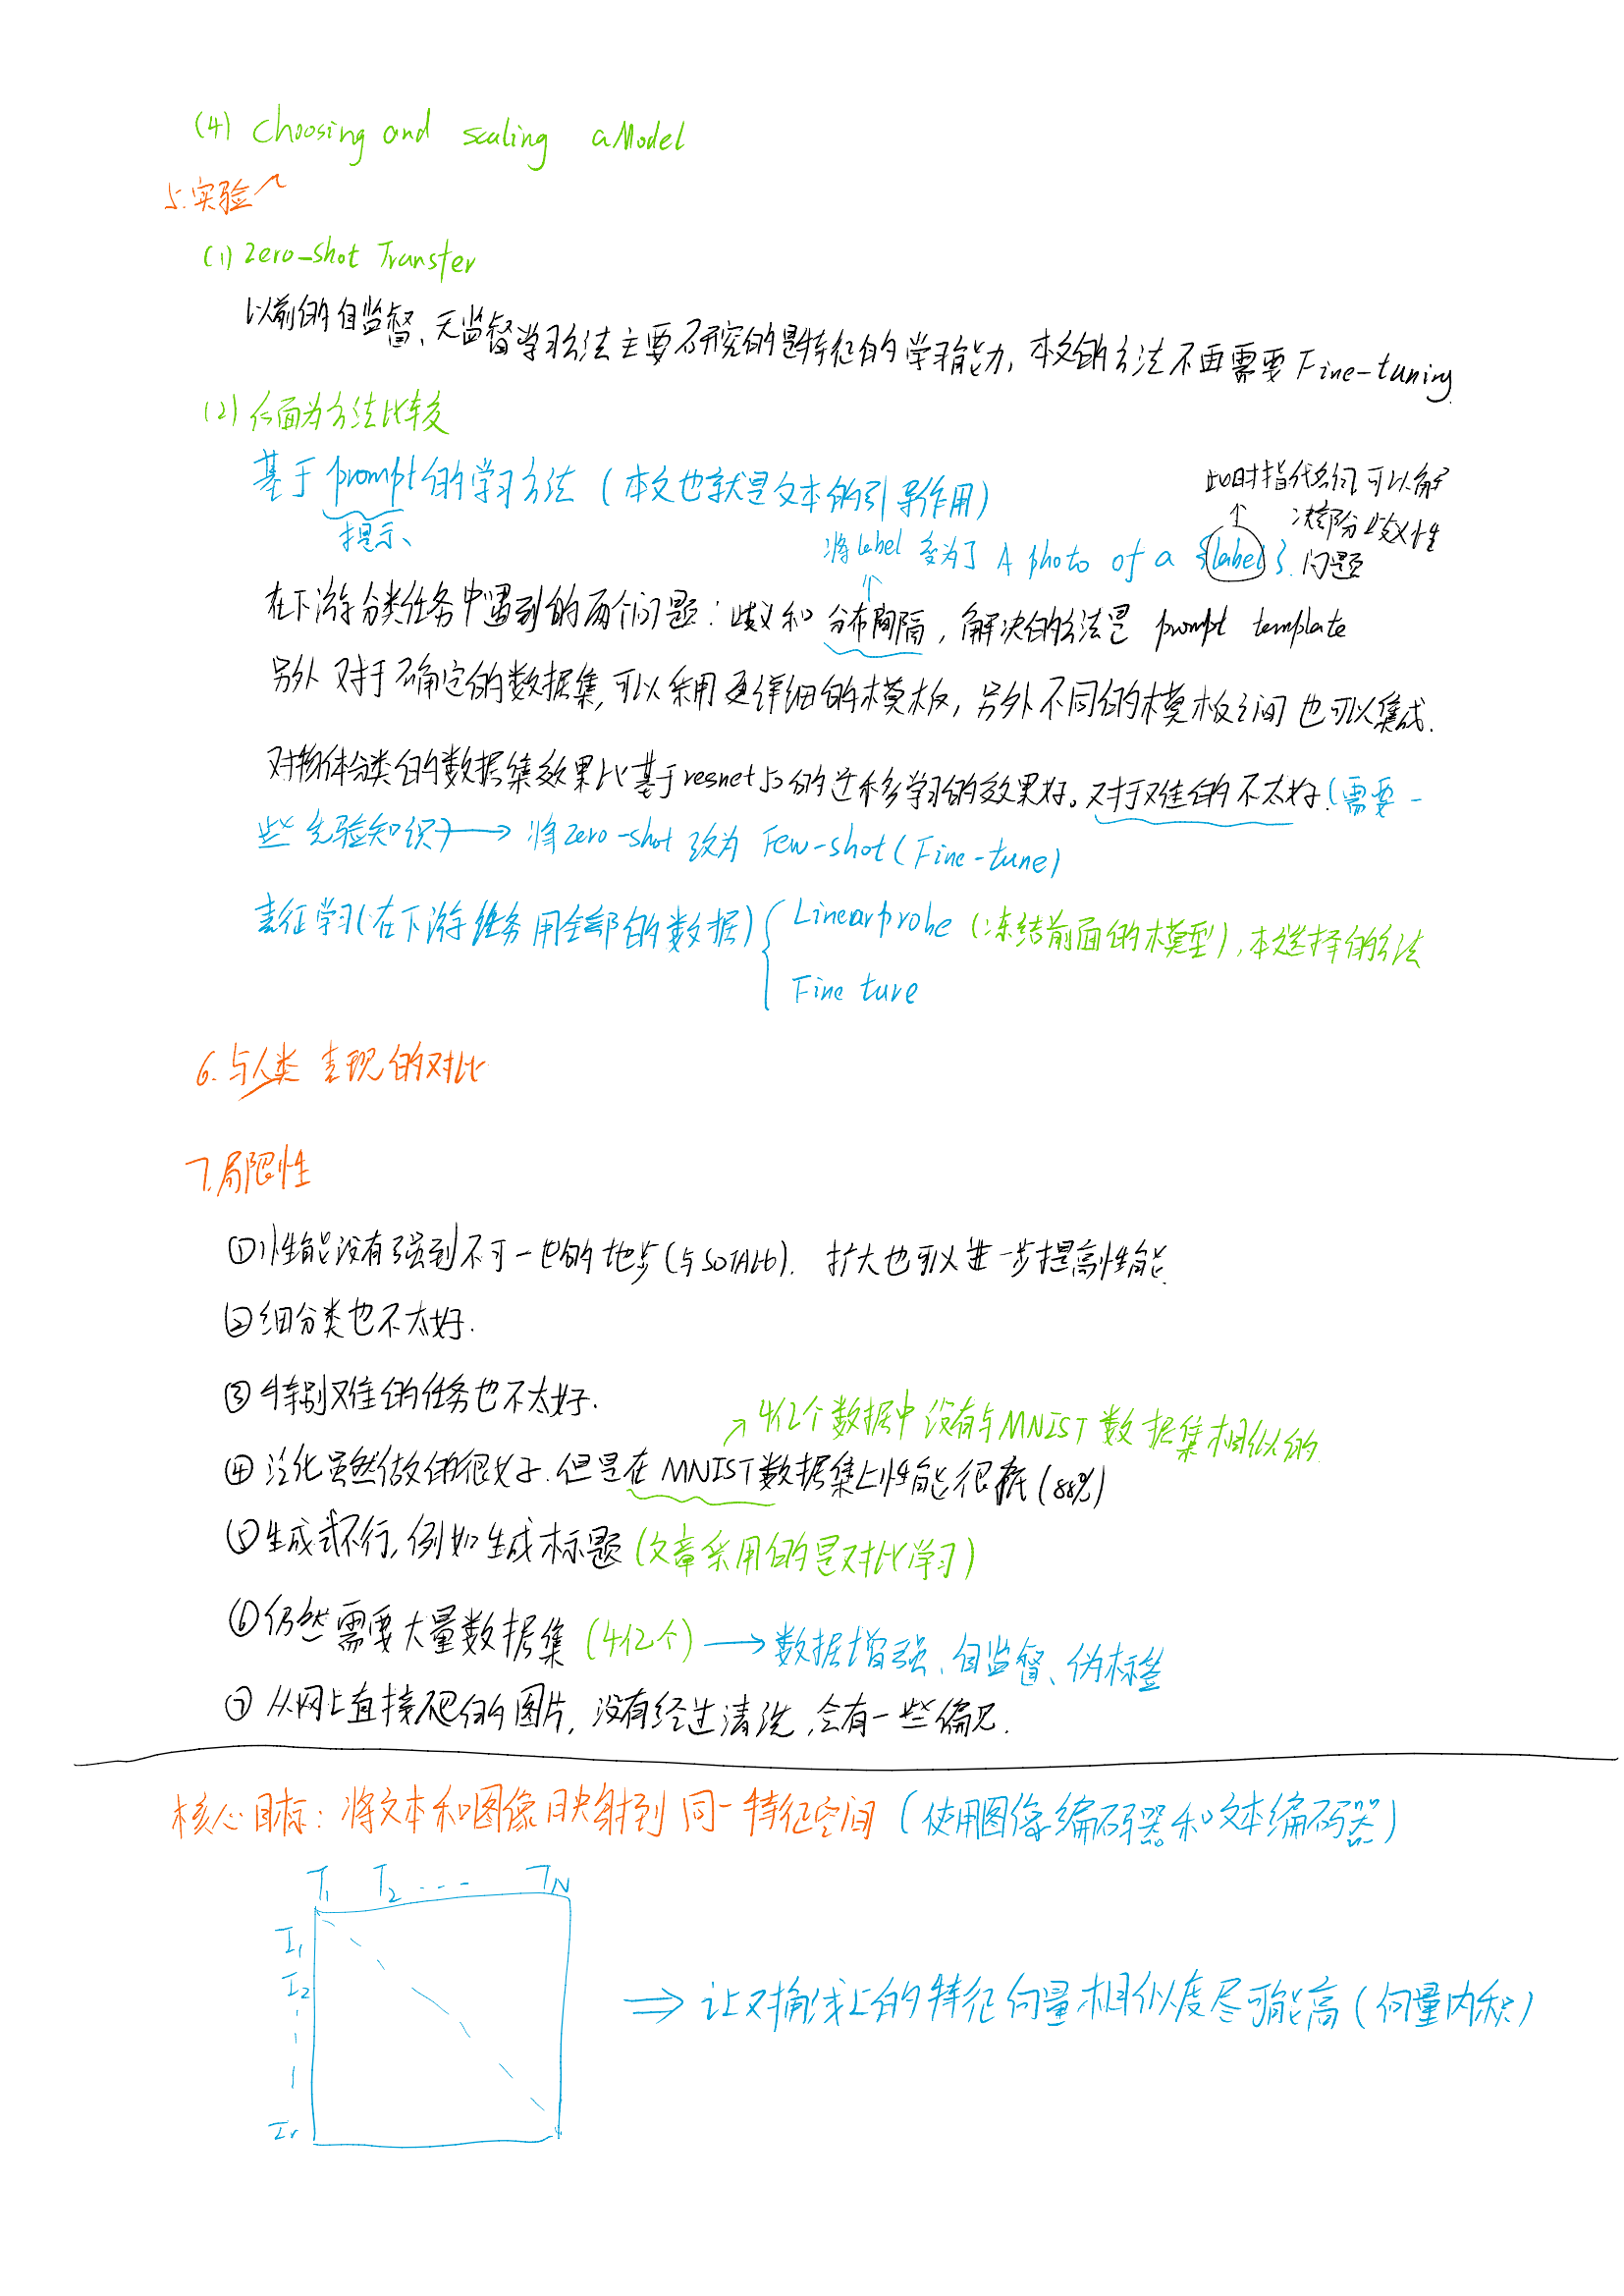 (4) Choosing and scaling a Model
5.实验
(1) Zero-shot Transfer
以前的自监督、无监督学习方法主要研究的是特征的学习能力,本文的方法不再需要 Fine-tuning.
(2) 后面为方法比较
基于prompt的学习方法(本文也就是文本的引导作用)
提示
此时指代名词 可以解
决部分歧义性
问题
将label 变为了 A photo of a {label}.
在下游分类任务中遇到的两个问题:歧义和分布间隔,解决的方法是 prompt template
另外对于确定的数据集,可以采用更详细的模板,另外不同的模板之间也可以集成.
对物体分类的数据集效果比基于resnet50的迁移学习的效果好。对于难的不太好!(需要一
些先验知识)→ 将zero-shot 改为 Few-shot (Fine-tune)
表征学习(在下游任务用全部的数据)
Linearprobe (冻结前面的模型),本文选择的方法
Fine ture
6.与人类表现的对比
7.局限性
①性能没有强到不可一世的地步(与SOTA比). 扩大也可以进一步提高性能.
②细分类也不太好.
③特别难的任务也不太好.
→4亿个数据中没有与MNIST数据集相似的.
④泛化虽然做的很好.但是在MNIST数据集上性能很低(88%)
⑤生成式不行,例如生成标题(文章采用的是对比学习)
⑥仍然需要大量数据集(4亿个)→数据增强、自监督、伪标签
⑦从网上直接爬的图片,没有经过清洗,会有一些偏见.
核心目标:将文本和图像映射到同一特征空间(使用图像编码器和文本编码器)
T1 T2 ... TN
I1
I2
⇒ 让对角线上的特征向量相似度尽可能高(向量内积)